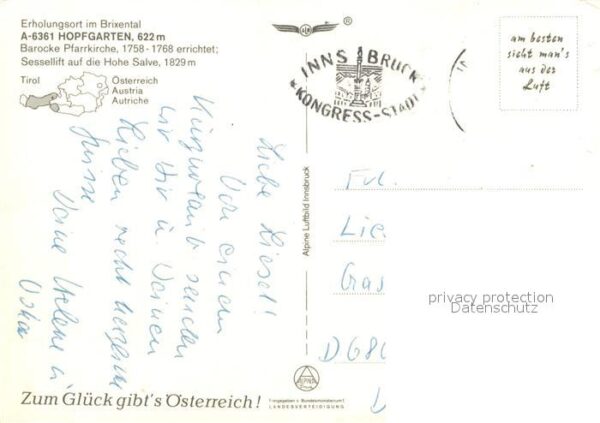 Erholungsort im Brixental
A-6361 HOPFGARTEN, 622 m
Barocke Pfarrkirche, 1758-1768 errichtet;
Sessellift auf die Hohe Salve, 1829 m
Tirol
Österreich
Austria
Autriche
®
INNSBRUCK
KONGRESS-STADT
am besten
sieht man's
aus der
Luft
Liebe Liesel!
Von einem
Kurzurlaub senden
wir Dir u. Deinen
Lieben recht herzliche
Grüsse
Deine Helene u.
Alpine Luftbild Innsbruck
Frl.
Lie
Gas
D 680
D
privacy protection
Datenschutz
ALPINE
Zum Glück gibt's Österreich!
Freigegeben v. Bundesministerium f.
LANDESVERTEIDIGUNG